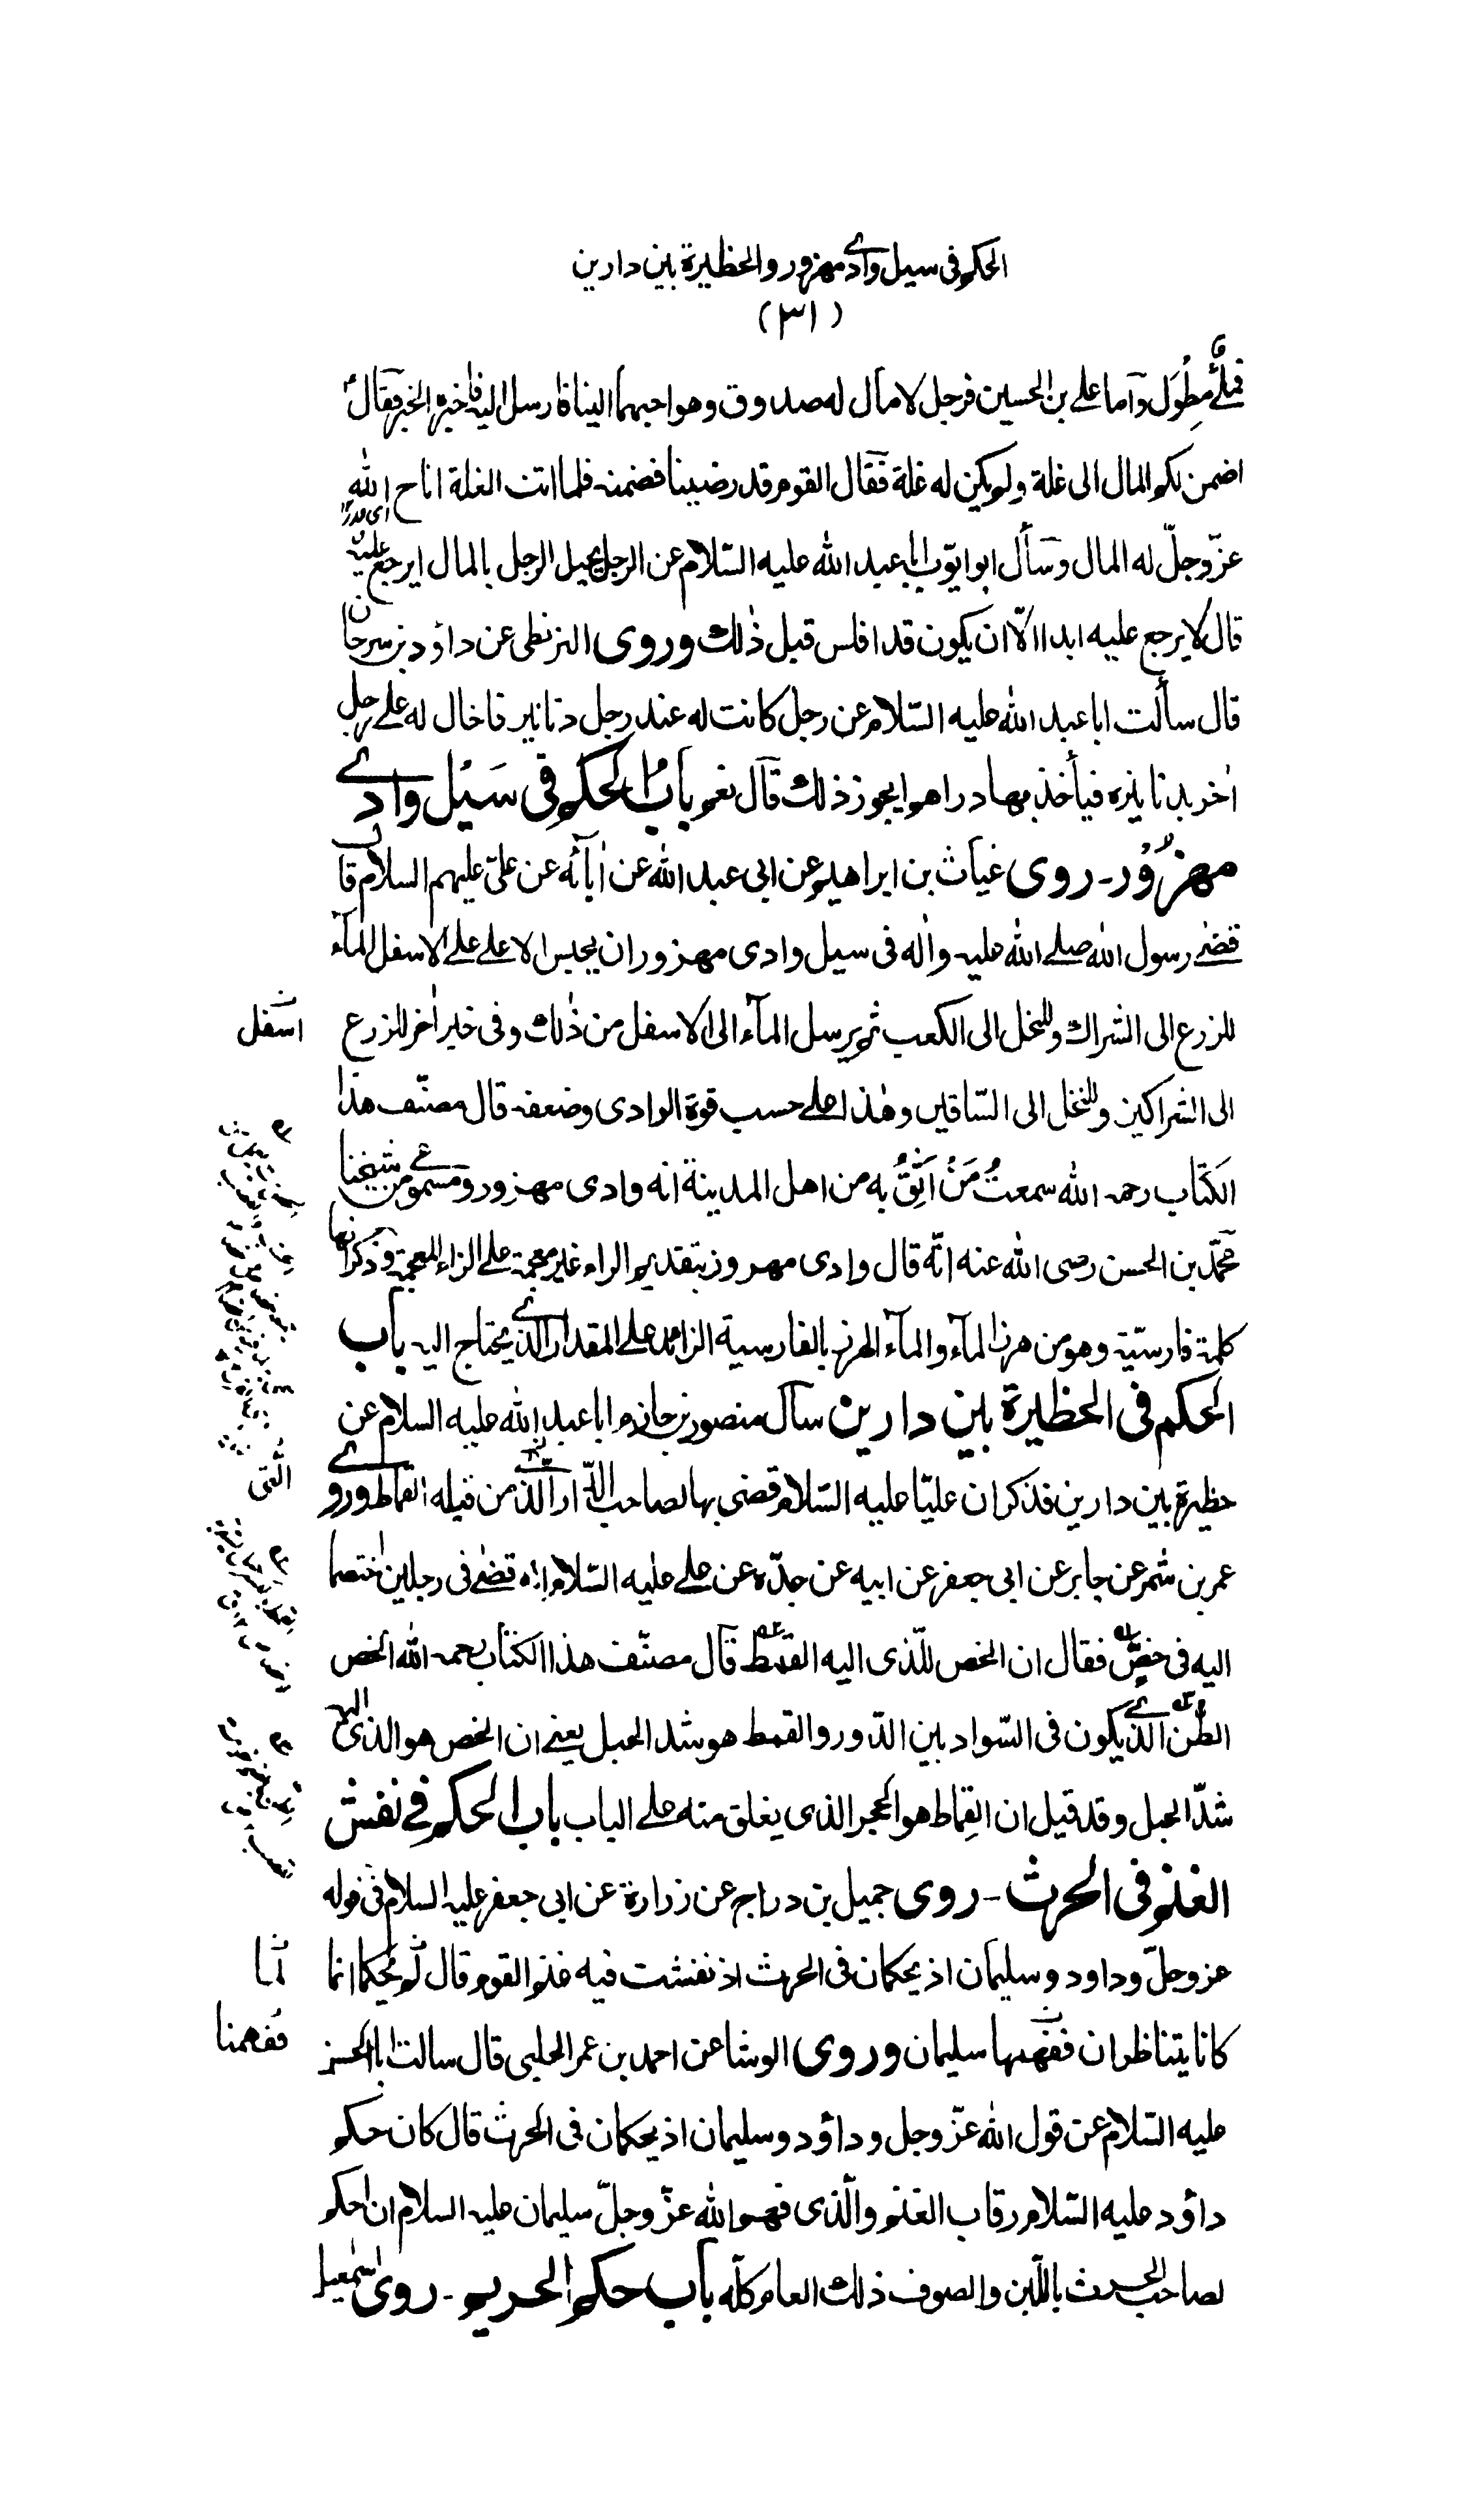 الحكم فى سيل وادے مهزور والحظيرة بين دارين
(٣١)
فملئ مطول واما على بن الحسين فرجل لا مال له صدوق وهو احبهما الينا فارسل اليه فاخبره الخبر فقال
اضمن لكم المال الى غلة ولم يكن له غلة فقال القوم قد رضينا فضمنه فلما اتت الغلة اتاح الله
عزّ وجلّ له المال وسأل ابو ايّوب ابا عبد الله عليه السّلام عن الرجل يحيل الرجل بالمال ايرجع عليه
قال لا يرجع عليه ابدا الّا ان يكون قد افلس قبل ذٰلك وروى البزنطى عن داؤد بن سرحان
قال سألت ابا عبد الله عليه السّلام عن رجل كانت له عند رجل دنانير فاحال له على رجل
اٰخر بدنانيره فيأخذ بها دراهم ايجوز ذلك قال نعم باب الحكم فى سَيْل وادے
مهزُوْر - روى غياث بن ابراهيم عن ابى عبد الله عن اٰبآئه عن علىّ عليهم السلام قال
قضے رسول الله صلے الله عليه واٰله فى سيل وادى مهزور ان يحبس الاعلے علے الاسفل المآء
للزرع الى الشراك وللنخل الى الكعب ثم يرسل المآء الى الاسفل من ذٰلك وفى خبر اٰخر للزرع
اسفل
الى الشراكين وللنخل الى السّاقين وهٰذا علے حسب قوة الوادى وضعفه قال مصنّف هذا
الكتاب رحمه الله سمعتُ مَنْ اَثِقُ به من اهل المدينة انه وادى مهزور ومسموعے من شيخنا
محمّد بن الحسن رضى الله عنه انّه قال وادى مهروز بتقديم الراء غير معجمة علے الزاء المعجمة وذكر انها
كلمة فارسيّة وهو من هرز المآء والمآء الهرز بالفارسية الزائد علے المقدار الذے يحتاج اليه باب
الحكم فى الحظيرة بين دارين سأل منصور بن حازم ابا عبد الله عليه السلام عن
حظيرة بين دارين فذكر ان عليّا عليه السّلام قضى بها لصاحب الدّار الذے من قبله القماط وروے
الّتى
عمر بن شمر عن جابر عن ابى جعفر عن ابيه عن جدّه عن علے عليه السّلام انه قضے فى رجلين اختصما
اليه فى خصّ فقال ان الخص للّذى اليه القمط قال مصنّف هذا الكتاب رحمه الله الخص
الطُن الذے يكون فى السّواد بين الدّور والقمط هو شد الحبل يعنے ان الخص هو الذى اليه
شدّ الحبل وقد قيل ان القِماط هو الحجر الذى يغلق منه علے الباب باب الحكم فے نفش
الغنم فى الحرث - روى جميل بن دراج عن زرارة عن ابى جعفر عليه السلام فى قوله
عز وجلّ وداود وسليمان اذ يحكمان فى الحرث اذ نفشت فيه غنم القوم قال لم يحكما انما
كانا يتناظران ففهمها سليمان وروى الوشا عن احمد بن عمر الحلبى قال سالت ابا الحسن
ففهمنا
عليه السّلام عن قول الله عزّ وجل وداؤد وسليمان اذ يحكمان فى الحرث قال كان حكم
داؤد عليه السّلام رقاب الغنم والّذى فهم الله عزّ وجلّ سليمان عليه السلام ان احكم
لصاحب الحرث باللّبن والصوف ذلك العام كلّه باب حكم الحريم - روى اسمٰعيل